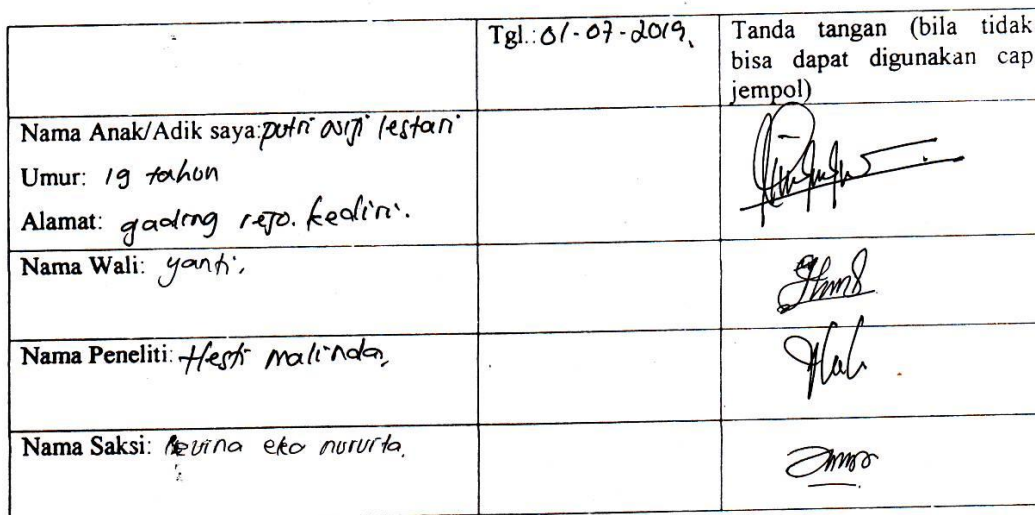 Tgl.: 01-07-2019,
Tanda tangan (bila tidak
bisa dapat digunakan cap
jempol)
Nama Anak/Adik saya: putri lestari
Umur: 19 tahun
Alamat: gading rejo. kediri.
Nama Wali: yanti,
Nama Peneliti: Hesti malinda,
Nama Saksi: eko